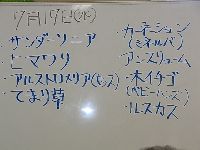 7月17日(水)
・サンダーソニア
・ヒマワリ
・アルストロメリア(ピンク)
・てまり草
・カーネーション
(ミネルバ)
・アンスリューム
・木イチゴ
(ベビーハンズ)
・ルスカス